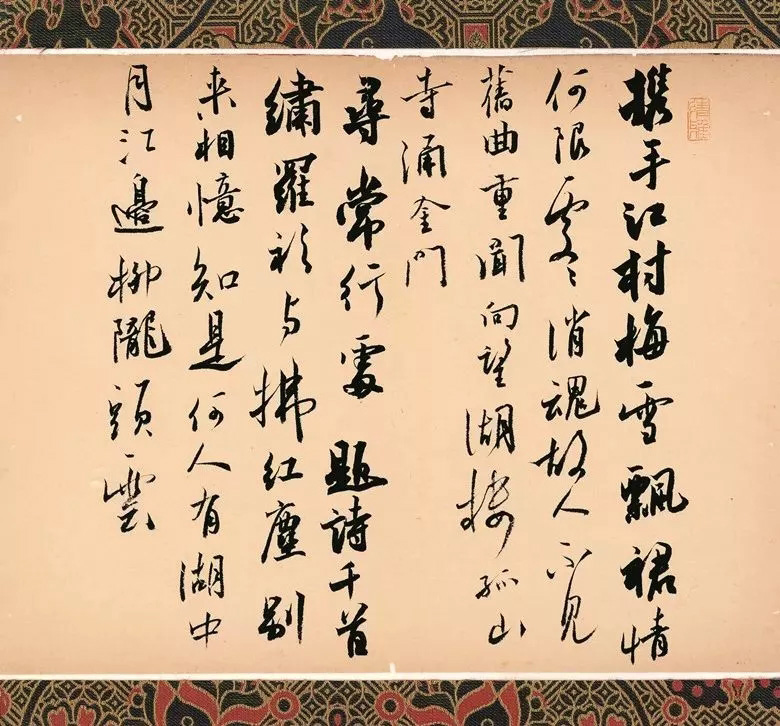 携手江村梅雪飄裙情
何限處々消魂故人不見
舊曲重聞向望湖樓孤山
寺涌金門
尋常行處題詩千首
繡羅衫与拂紅塵别
来相憶知是何人有湖中
月江邊柳隴頭雲